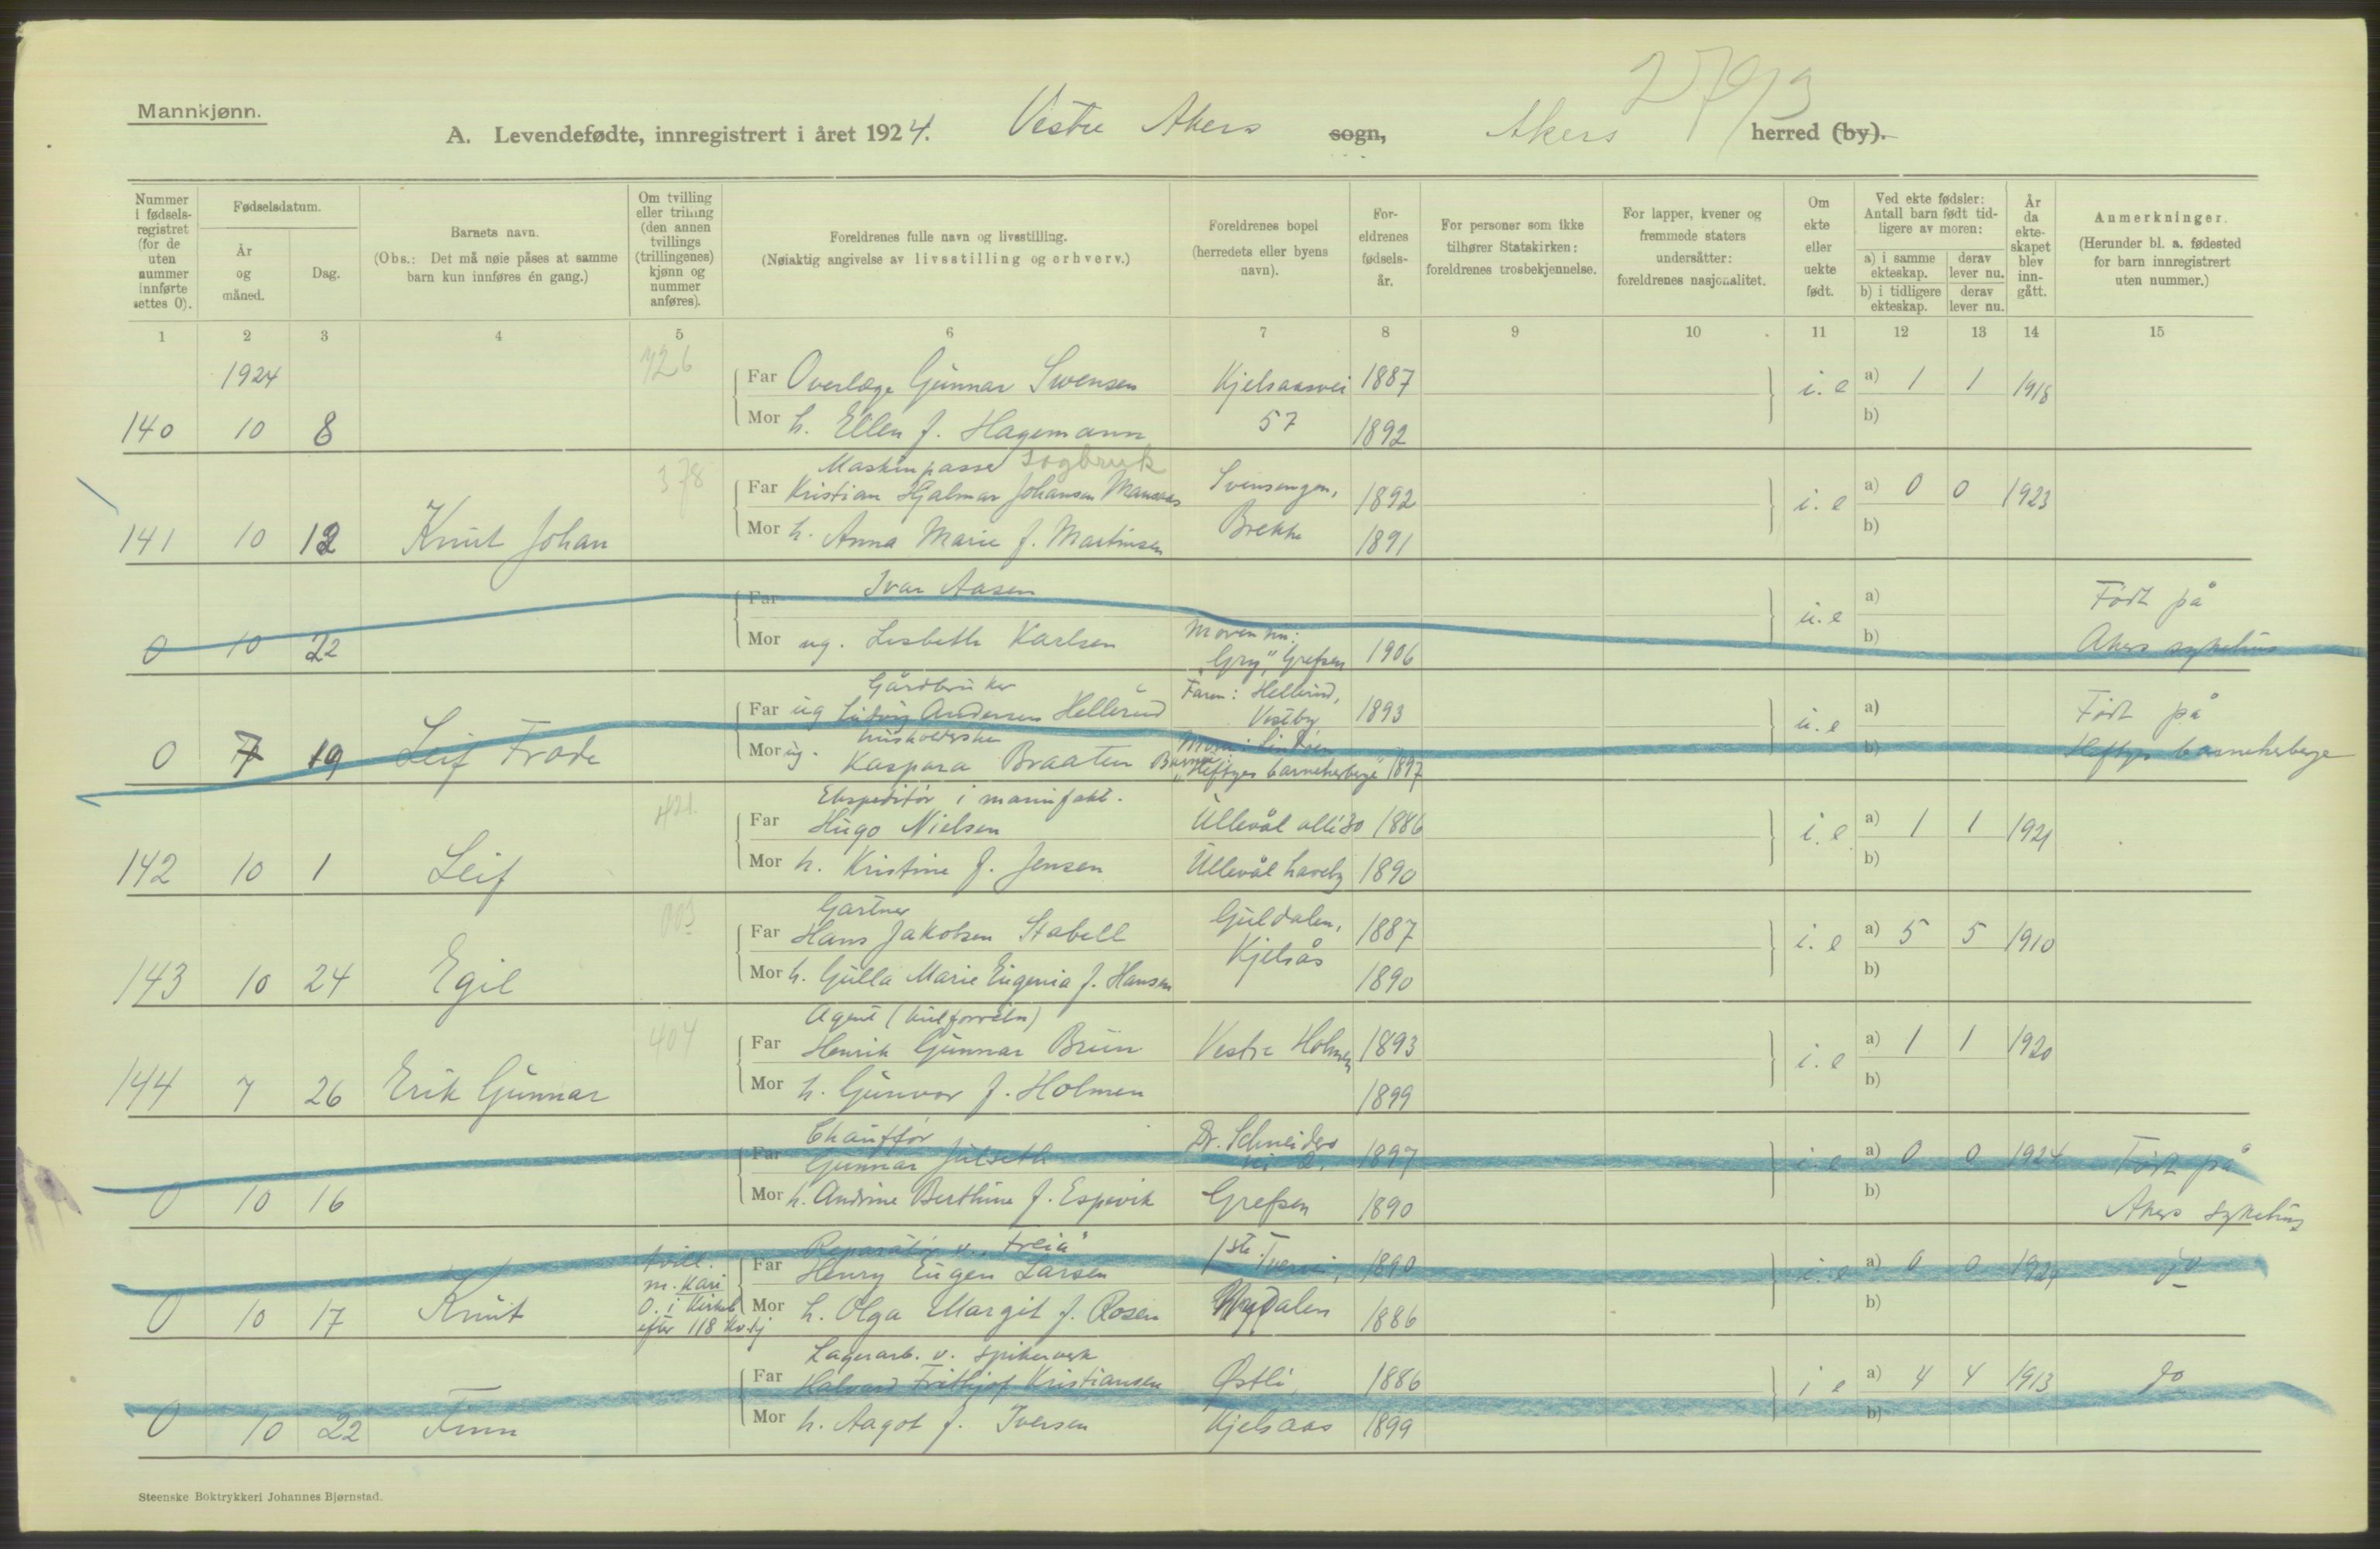 279/3
Mannkjønn.
A. Levendefødte, innregistrert i året 1924. Vestre Akers sogn, Akers herred (by).
Nummer i fødsels-registret (for de uten nummer innførte settes 0).
Fødselsdatum.
År og måned.
Dag.
Barnets navn.
(Obs.: Det må nøie påses at samme barn kun innføres én gang.)
Om tvilling eller trilling (den annen tvillings (trillingenes) kjønn og nummer anføres).
Foreldrenes fulle navn og livsstilling.
(Nøiaktig angivelse av livsstilling og erhverv.)
Foreldrenes bopel (herredets eller byens navn).
For-eldrenes fødsels-år.
For personer som ikke tilhører Statskirken: foreldrenes trosbekjennelse.
For lapper, kvener og fremmede staters undersåtter: foreldrenes nasjonalitet.
Om ekte eller uekte født.
Ved ekte fødsler: Antall barn født tid-ligere av moren:
a) i samme ekteskap.
derav lever nu.
b) i tidligere ekteskap.
derav lever nu.
År da ekte-skapet blev inn-gått.
Anmerkninger.
(Herunder bl. a. fødested for barn innregistrert uten nummer.)
1 2 3 4 5 6 7 8 9 10 11 12 13 14 15
1924 726
Far Overlæge Gunnar Swensen Kjelsaasvei 1887 i. e a) 1 1 1918
140 10 8 Mor h. Ellen f. Hagemann 57 1892 b)
Maskinpasser sagbruk
378 Far Kristian Hjalmar Johansen Svensengen, 1892 i. e a) 0 0 1923
141 10 12 Knut Johan Mor h. Anna Marie f. Martinsen Brekke 1891 b)
Far Ivar Aasen u. e a) Født på
0 10 22 Mor ug. Lisbeth Karlsen Moren nu: "Gry", Grefsen 1906 b) Akers sykehus
Gårdbruker
Far ug Ludvig Andersen Hellerud Faren: Hellerud, Vestby 1893 u. e a) Født på
husholderske
0 7 19 Leif Frode Mor ug. Kaspara Braaten Barnet: "Heftyes barneherberge" 1897 b) Heftyes barneherberge
Ekspeditør i manufakt.
421. Far Hugo Nielsen Ullevål allé 30 1886 i. e a) 1 1 1921
142 10 1 Leif Mor h. Kristine f. Jensen Ullevål haveby 1890 b)
Gartner
003 Far Hans Jakobsen Stabell Guldalen, 1887 i. e a) 5 5 1910
143 10 24 Egil Mor h. Gulla Marie Eugenia f. Hansen Kjelsås 1890 b)
Agent
404 Far Henrik Gunnar Bruun Vestre Holmen 1893 i. e a) 1 1 1920
144 7 26 Erik Gunnar Mor h. Gunvor f. Holmen 1899 b)
Chauffør
Far Gunnar Julseth Dr. Schneiders vei 2, 1897 i. e a) 0 0 1924 Født på
0 10 16 Mor h. Andrine Berthine f. Espevik Grefsen 1890 b) Akers sykehus
tvill. Reparatør v. "Freia"
m. Kari Far Henry Eugen Larsen 1ste Tvervei, 1890 i. e a) 0 0 1924 do
0 10 17 Knut 0. i Kirkeb. efter 118 kvkj Mor h. Olga Margit f. Rosen Nydalen 1886 b)
Lagerarb. v. Spikerverk
Far Halvard Frithjof Kristiansen Østli, 1886 i e a) 4 4 1913 do
0 10 22 Finn Mor h. Aagot f. Iversen Kjelsaas 1899 b)
Steenske Boktrykkeri Johannes Bjørnstad.